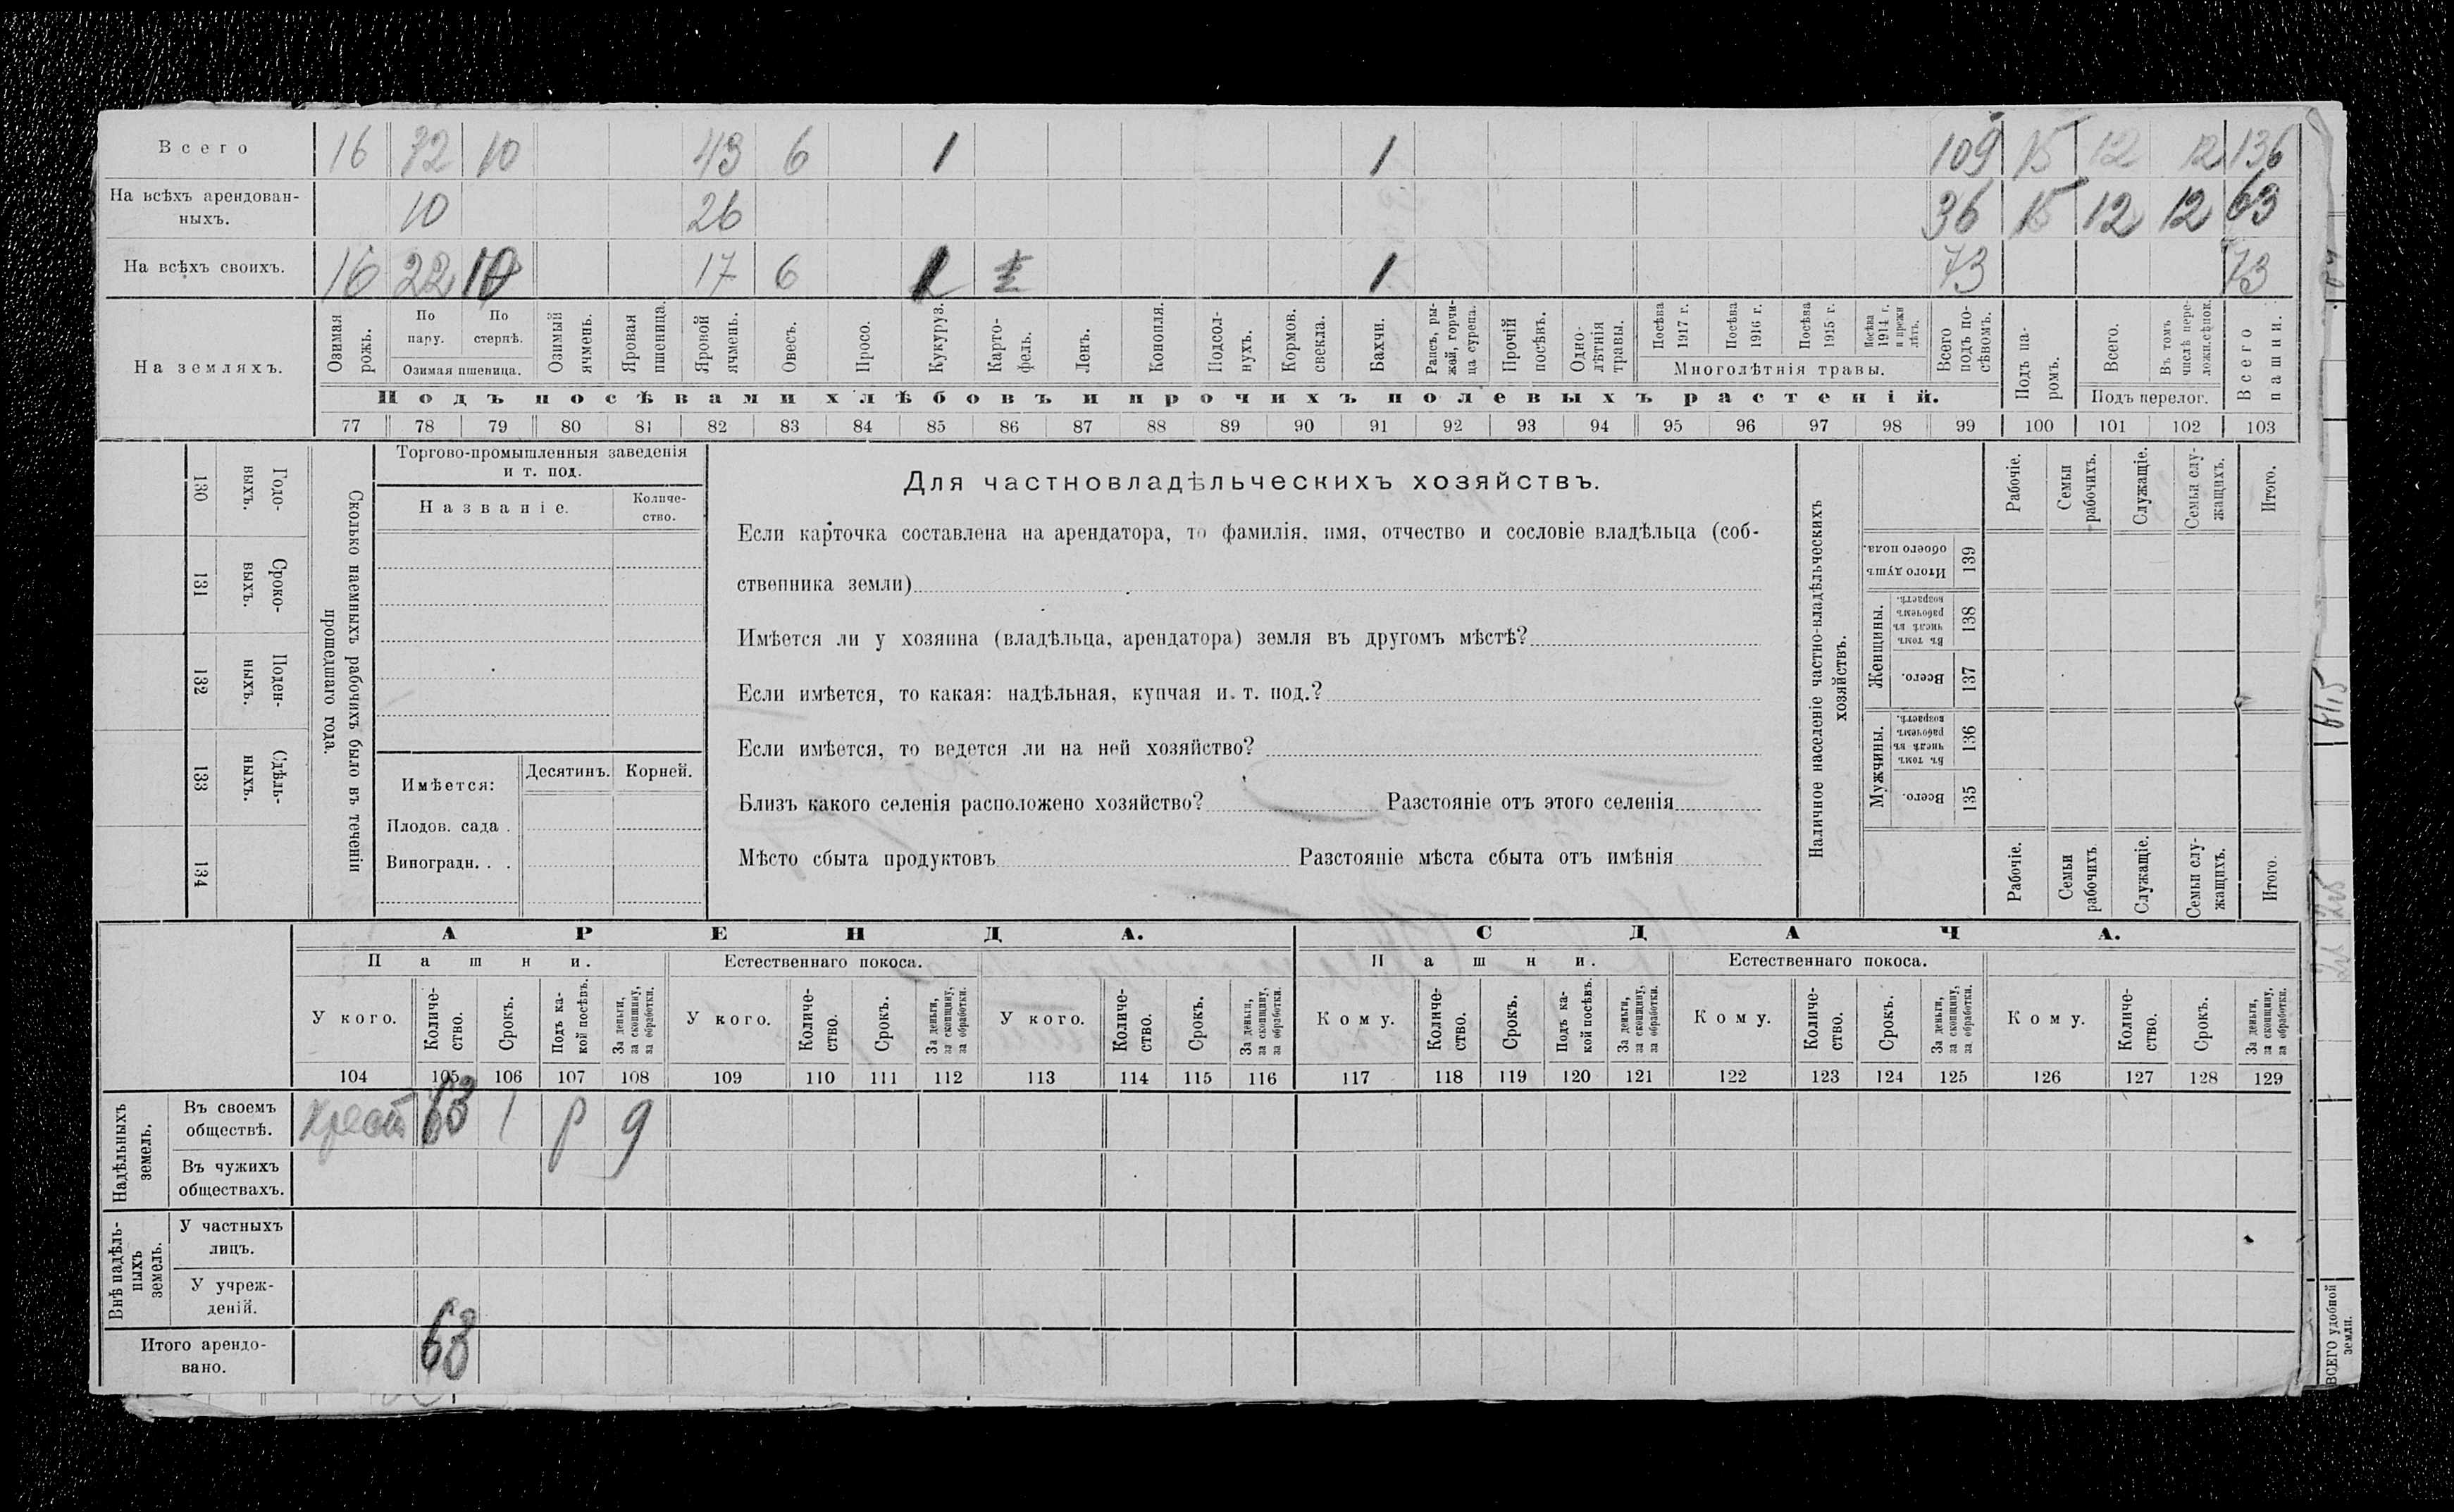 Всего 16 32 10 43 6 1 1 109 15 12 12 136
На всѣхъ арендован- 10 26 36 15 12 12 63
ныхъ.
На всѣхъ своихъ. 16 22 10 17 6 1 1 73 73
На земляхъ.
Озимая рожь.
По пару.
По стернѣ.
Озимая пшеница.
Озимый ячмень.
Яровая пшеница.
Яровой ячмень.
Овесъ.
Просо.
Кукуруз.
Карто-
фель.
Ленъ.
Конопля.
Подсол-
нухъ.
Кормов. свекла.
Бахчи.
Рапсъ, ры-
жай, горчи-
ца сурепа.
Прочій посѣвъ.
Одно-
лѣтнія травы.
Посѣва 1917 г.
Посѣва 1916 г.
Посѣва 1915 г.
Посѣва 1914 г. и прежн лѣтъ.
Многолѣтнія травы.
Всего подъ по-
сѣвомъ.
Подъ па-
ромъ.
Всего.
Въ томъ числѣ пере-
ложн.сѣнок.
Подъ перелог.
Всего пашни.
Подъ посѣвами хлѣбовъ и прочихъ полевыхъ растеній.
77 78 79 80 81 82 83 84 85 86 87 88 89 90 91 92 93 94 95 96 97 98 99 100 101 102 103
130 Годо-
выхъ.
131 Сроко-
выхъ.
132 Поден-
ныхъ.
133 Сдѣль-
ныхъ.
134
Сколько наемныхъ рабочихъ было въ теченіи
прошедшаго года.
Торгово-промышленныя заведенія
и т. под.
Названіе.
Количе-
ство.
Имѣется: Десятинъ. Корней.
Плодов. сада .
Виноградн. . .
Для частновладѣльческихъ хозяйствъ.
Если карточка составлена на арендатора, то фамилія, имя, отчество и сословіе владѣльца (соб-
ственника земли)
Имѣется ли у хозяина (владѣльца, арендатора) земля въ другомъ мѣстѣ?
Если имѣется, то какая: надѣльная, купчая и т. под.?
Если имѣется, то ведется ли на ней хозяйство?
Близъ какого селенія расположено хозяйство? Разстояніе отъ этого селенія
Мѣсто сбыта продуктовъ Разстояніе мѣста сбыта отъ имѣнія
Наличное населеніе частно-владѣльческихъ
хозяйствъ.
Рабочіе.
Семьи рабочихъ.
Служащіе.
Семьи слу-
жащихъ.
Итого.
Итого душъ обоего пола. 139
Женщины.
Въ томъ числѣ въ рабочемъ возрастѣ. 138
Всего. 137
Мужчины.
Въ томъ числѣ въ рабочемъ возрастѣ. 136
Всего. 135
Рабочіе.
Семьи рабочихъ.
Служащіе.
Семьи слу-
жащихъ.
Итого.
АРЕНДА. СДАЧА.
Пашни. Естественнаго покоса. Пашни. Естественнаго покоса.
У кого.
Количе-
ство.
Срокъ.
Подъ ка-
кой посѣвъ.
За деньги, за скопщину, за обработки.
У кого.
Количе-
ство.
Срокъ.
За деньги, за скопщину, за обработки.
У кого.
Количе-
ство.
Срокъ.
За деньги, за скопщину, за обработки.
Кому.
Количе-
ство.
Срокъ.
Подъ ка-
кой посѣвъ.
За деньги, за скопщину, за обработки.
Кому.
Количе-
ство.
Срокъ.
За деньги, за скопщину, за обработки.
Кому.
Количе-
ство.
Срокъ.
За деньги, за скопщину, за обработки.
104 105 106 107 108 109 110 111 112 113 114 115 116 117 118 119 120 121 122 123 124 125 126 127 128 129
Надѣльныхъ
земель.
Въ своемъ
обществѣ.
Крест 63 1 р д
Въ чужихъ
обществахъ.
Внѣ надѣль-
ныхъ
земель.
У частныхъ
лицъ.
У учреж-
деній.
Итого арендо-
вано.
63
ВСЕГО удобной
земли.